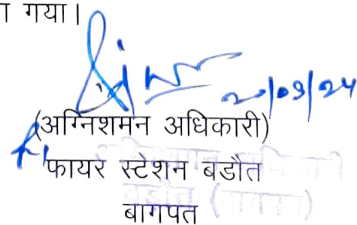 गया।
20/09/24
(अग्निशमन अधिकारी)
फायर स्टेशन बडौत
बागपत